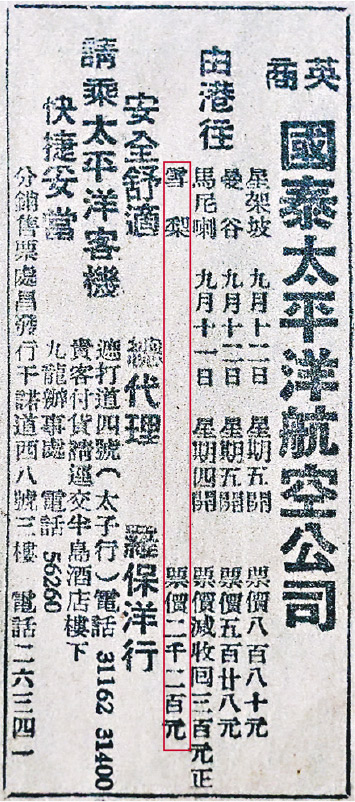 英商
國泰太平洋航空公司
由港往
星架坡 九月十二日 星期五開 票價八百八十元
曼谷 九月十二日 星期五開 票價五百廿八元
馬尼喇 九月十一日 星期四開 票價減收回三百元正
雪梨 票價二千二百元
安全舒適
請乘太平洋客機
快捷妥當
總代理 羅保洋行
遮打道四號(太子行)電話 31162 31400
貴客付貨請逕交半島酒店樓下
九龍辦事處 電話 56260
分銷售票處昌發行干諾道西八號三樓 電話二六三四一